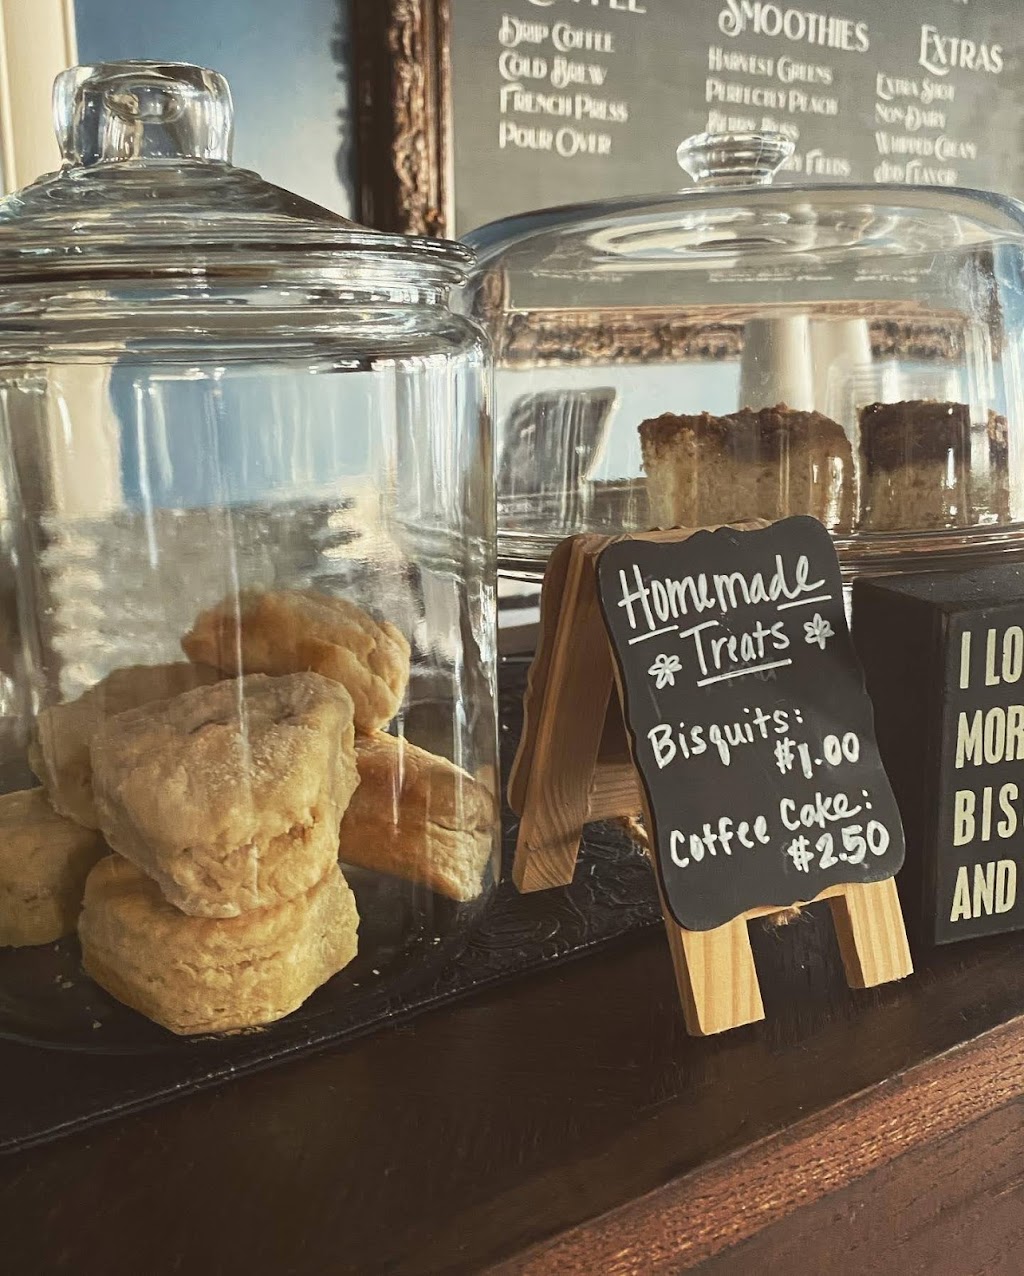 DRIP COFFEE
COLD BREW
FRENCH PRESS
POUR OVER
SMOOTHIES
HARVEST GREENS
PERFECTLY PEACH
FIELDS
EXTRAS
EXTRA SHOT
NON-DAIRY
WHIPPED CREAM
ADD FLAVOR
Homemade
Treats
Bisquits:
$1.00
Coffee Cake:
$2.50
I LO
MOR
BIS
AND